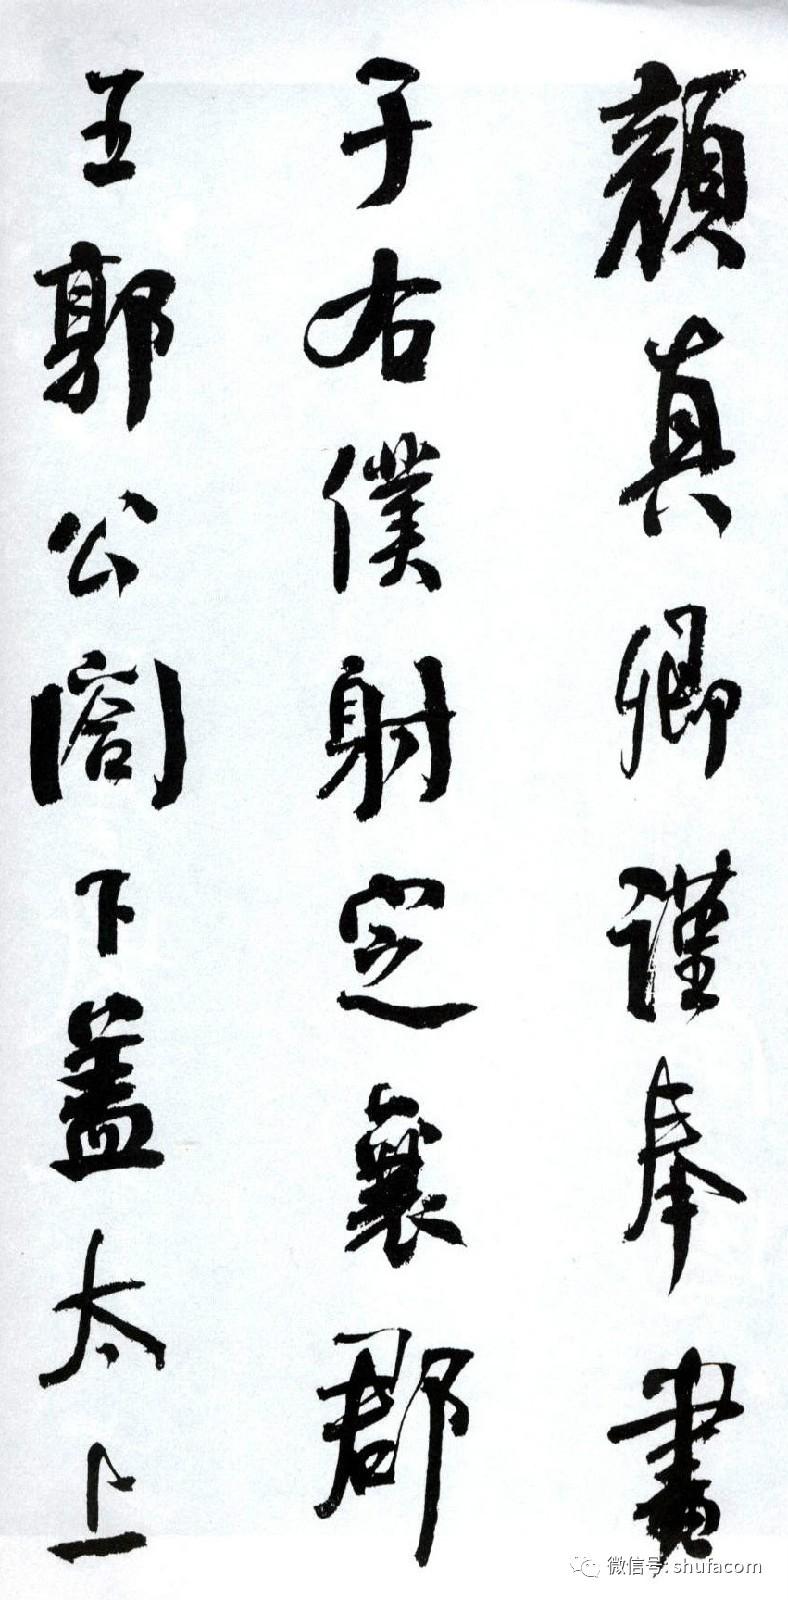 顔真卿謹奉書
于右僕射定襄郡
王郭公閤下蓋太上
微信号: shufacom